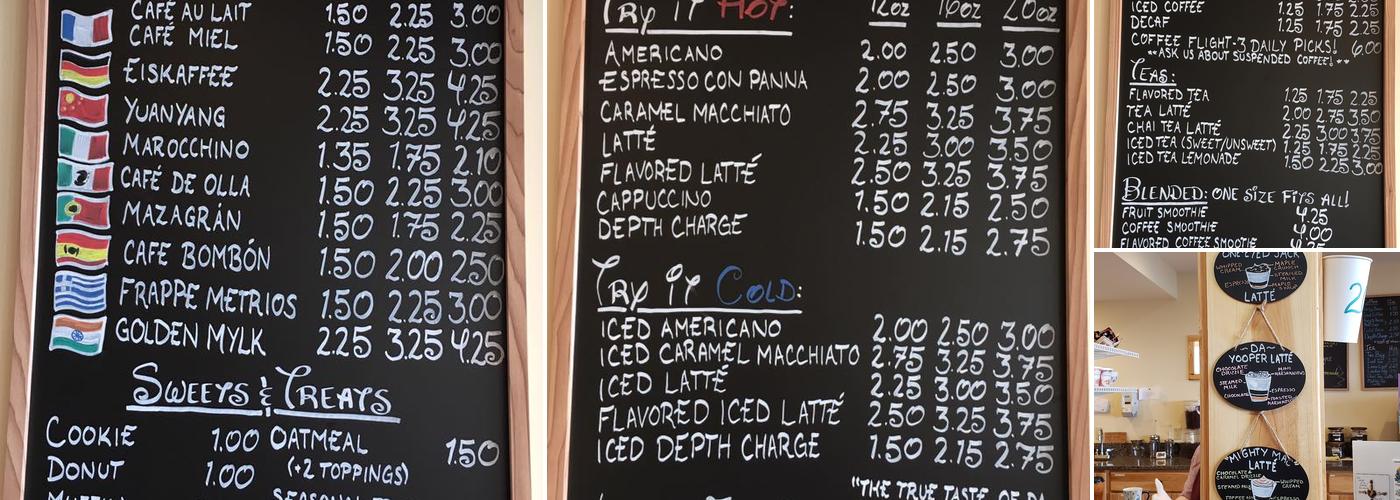 CAFÉ AU LAIT 1.50 2.25 3.00
CAFÉ MIEL 1.50 2.25 3.00
EISKAFFEE 2.25 3.25 4.25
YUANYANG 2.25 3.25 4.25
MAROCCHINO 1.35 1.75 2.10
CAFÉ DE OLLA 1.50 2.25 3.00
MAZAGRÁN 1.50 1.75 2.25
CAFE BOMBÓN 1.50 2.00 2.50
FRAPPE METRIOS 1.50 2.25 3.00
GOLDEN MYLK 2.25 3.25 4.25
SWEETS & TREATS
COOKIE 1.00 OATMEAL 1.50
DONUT 1.00 (+2 TOPPINGS)
TRY IT HOT: 12oz 16oz 20oz
AMERICANO 2.00 2.50 3.00
ESPRESSO CON PANNA 2.00 2.50 3.00
CARAMEL MACCHIATO 2.75 3.25 3.75
LATTÉ 2.25 3.00 3.50
FLAVORED LATTÉ 2.50 3.25 3.75
CAPPUCCINO 1.50 2.15 2.50
DEPTH CHARGE 1.50 2.15 2.75
TRY IT COLD:
ICED AMERICANO 2.00 2.50 3.00
ICED CARAMEL MACCHIATO 2.75 3.25 3.75
ICED LATTÉ 2.25 3.00 3.50
FLAVORED ICED LATTÉ 2.50 3.25 3.75
ICED DEPTH CHARGE 1.50 2.15 2.75
"THE TRUE TASTE OF DA
ICED COFFEE 1.25 1.75 2.25
DECAF 1.25 1.75 2.25
COFFEE FLIGHT-3 DAILY PICKS! 6.00
**ASK US ABOUT SUSPENDED COFFEE!**
TEAS:
FLAVORED TEA 1.25 1.75 2.25
TEA LATTÉ 2.00 2.75 3.50
CHAI TEA LATTÉ 2.25 3.00 3.75
ICED TEA (SWEET/UNSWEET) 1.25 1.75 2.25
ICED TEA LEMONADE 1.50 2.25 3.00
BLENDED: ONE SIZE FITS ALL!
FRUIT SMOOTHIE 4.25
COFFEE SMOOTHIE 4.00
FLAVORED COFFEE SMOOTIE 4.25
ONE-EYED JACK
WHIPPED CREAM
MAPLE CRUNCH
STEAMED MILK
ESPRESSO
LATTÉ
2
~DA~
YOOPER LATTÉ
CHOCOLATE DRIZZLE
MINI MARSHMALLOWS
STEAMED MILK
ESPRESSO
CHOCOLATE
TOASTED
"MIGHTY MAC"
LATTÉ
CHOCOLATE & CARAMEL DRIZZLE
WHIPPED CREAM
STEAMED MILK
ESPRESSO